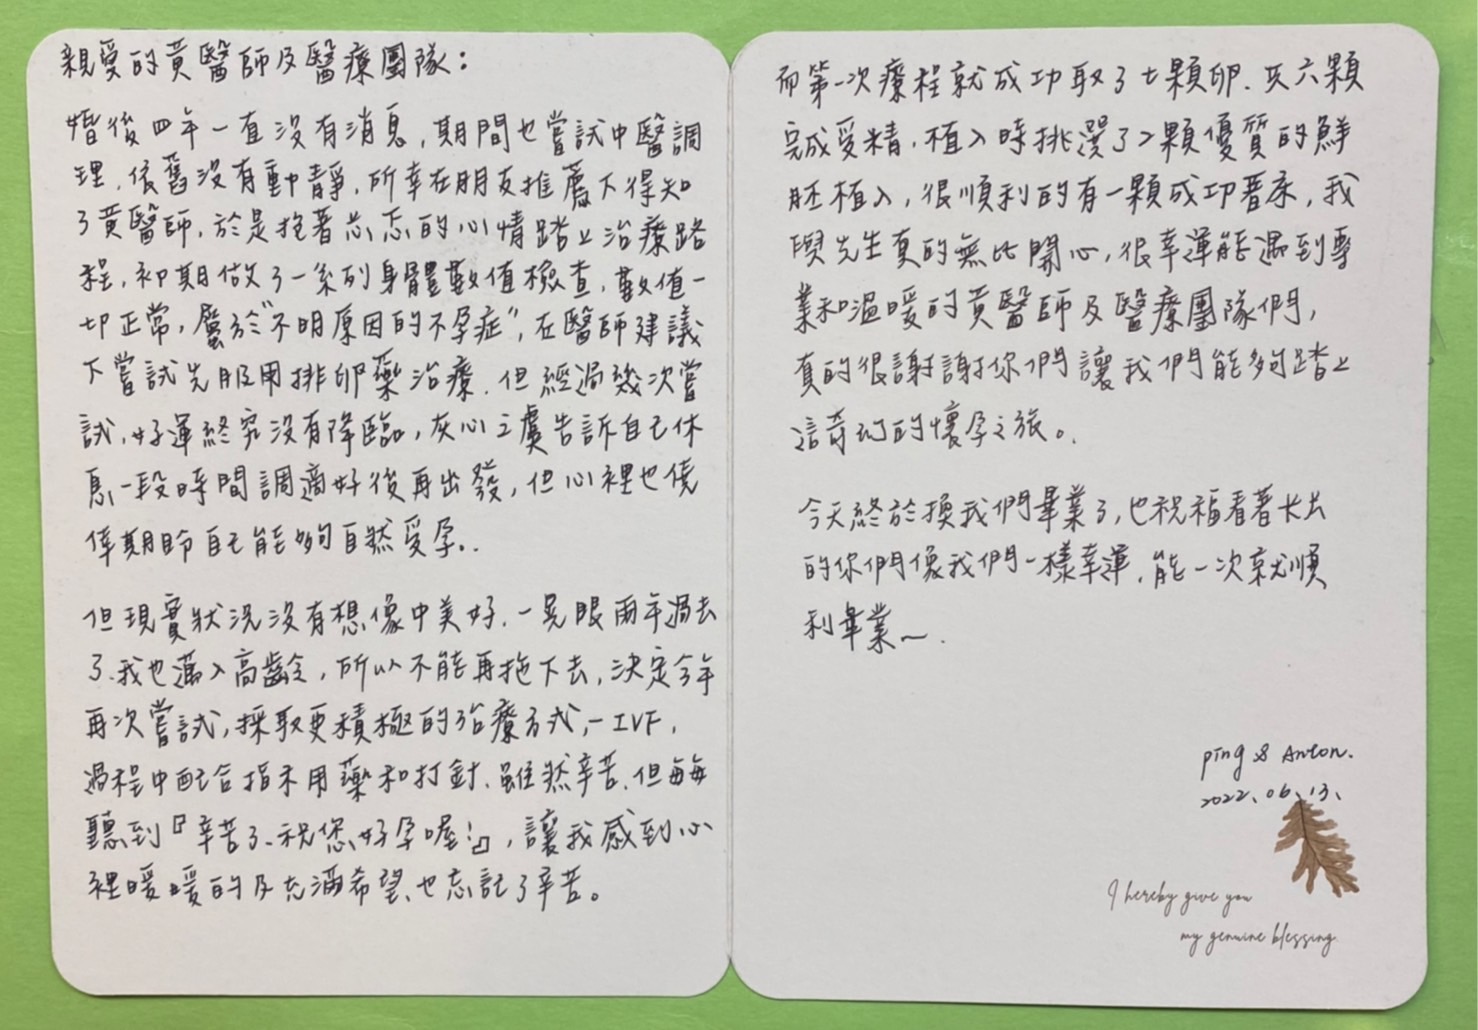 親愛的黃醫師及醫療團隊：
婚後四年一直沒有消息，期間也嘗試中醫調
理，依舊沒有動靜，所幸在朋友推薦下得知
了黃醫師，於是抱著忐忑的心情踏上治療路
程，初期做了一系列身體數值檢查，數值一
切正常，屬於"不明原因的不孕症"，在醫師建議
下嘗試先服用排卵藥治療，但經過幾次嘗
試，好運終究沒有降臨，灰心之虞告訴自己休
息一段時間調適好後再出發，但心裡也僥
倖期盼自己能夠自然受孕..
但現實狀況沒有想像中美好，一晃眼兩年過去
了，我也邁入高齡，所以不能再拖下去，決定今年
再次嘗試，採取更積極的治療方式，－IVF，
過程中配合指示用藥和打針，雖然辛苦，但每每
聽到『辛苦了、祝您好孕喔！』，讓我感到心
裡暖暖的及充滿希望、也忘記了辛苦。
而第一次療程就成功取了七顆卵，共六顆
完成受精，植入時挑選了2顆優質的鮮
胚植入，很順利的有一顆成功著床，我
與先生真的無比開心，很幸運能遇到專
業和溫暖的黃醫師及醫療團隊們，
真的很謝謝你們讓我們能夠踏上
這奇妙的懷孕之旅。.
今天終於換我們畢業了，也祝福看著卡片
的你們像我們一樣幸運，能一次就順
利畢業～.
Ping & Anton.
2022、06、13、
I hereby give you
my genuine blessing